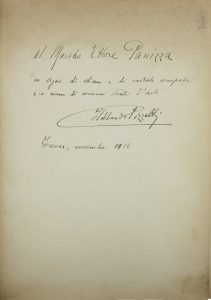 Al Maestro Ettore Panizza
in segno di stima e di cordiale simpatia
e in nome di comuni ideali d'arte
Ildebrando Pizzetti
Firenze, novembre 1916